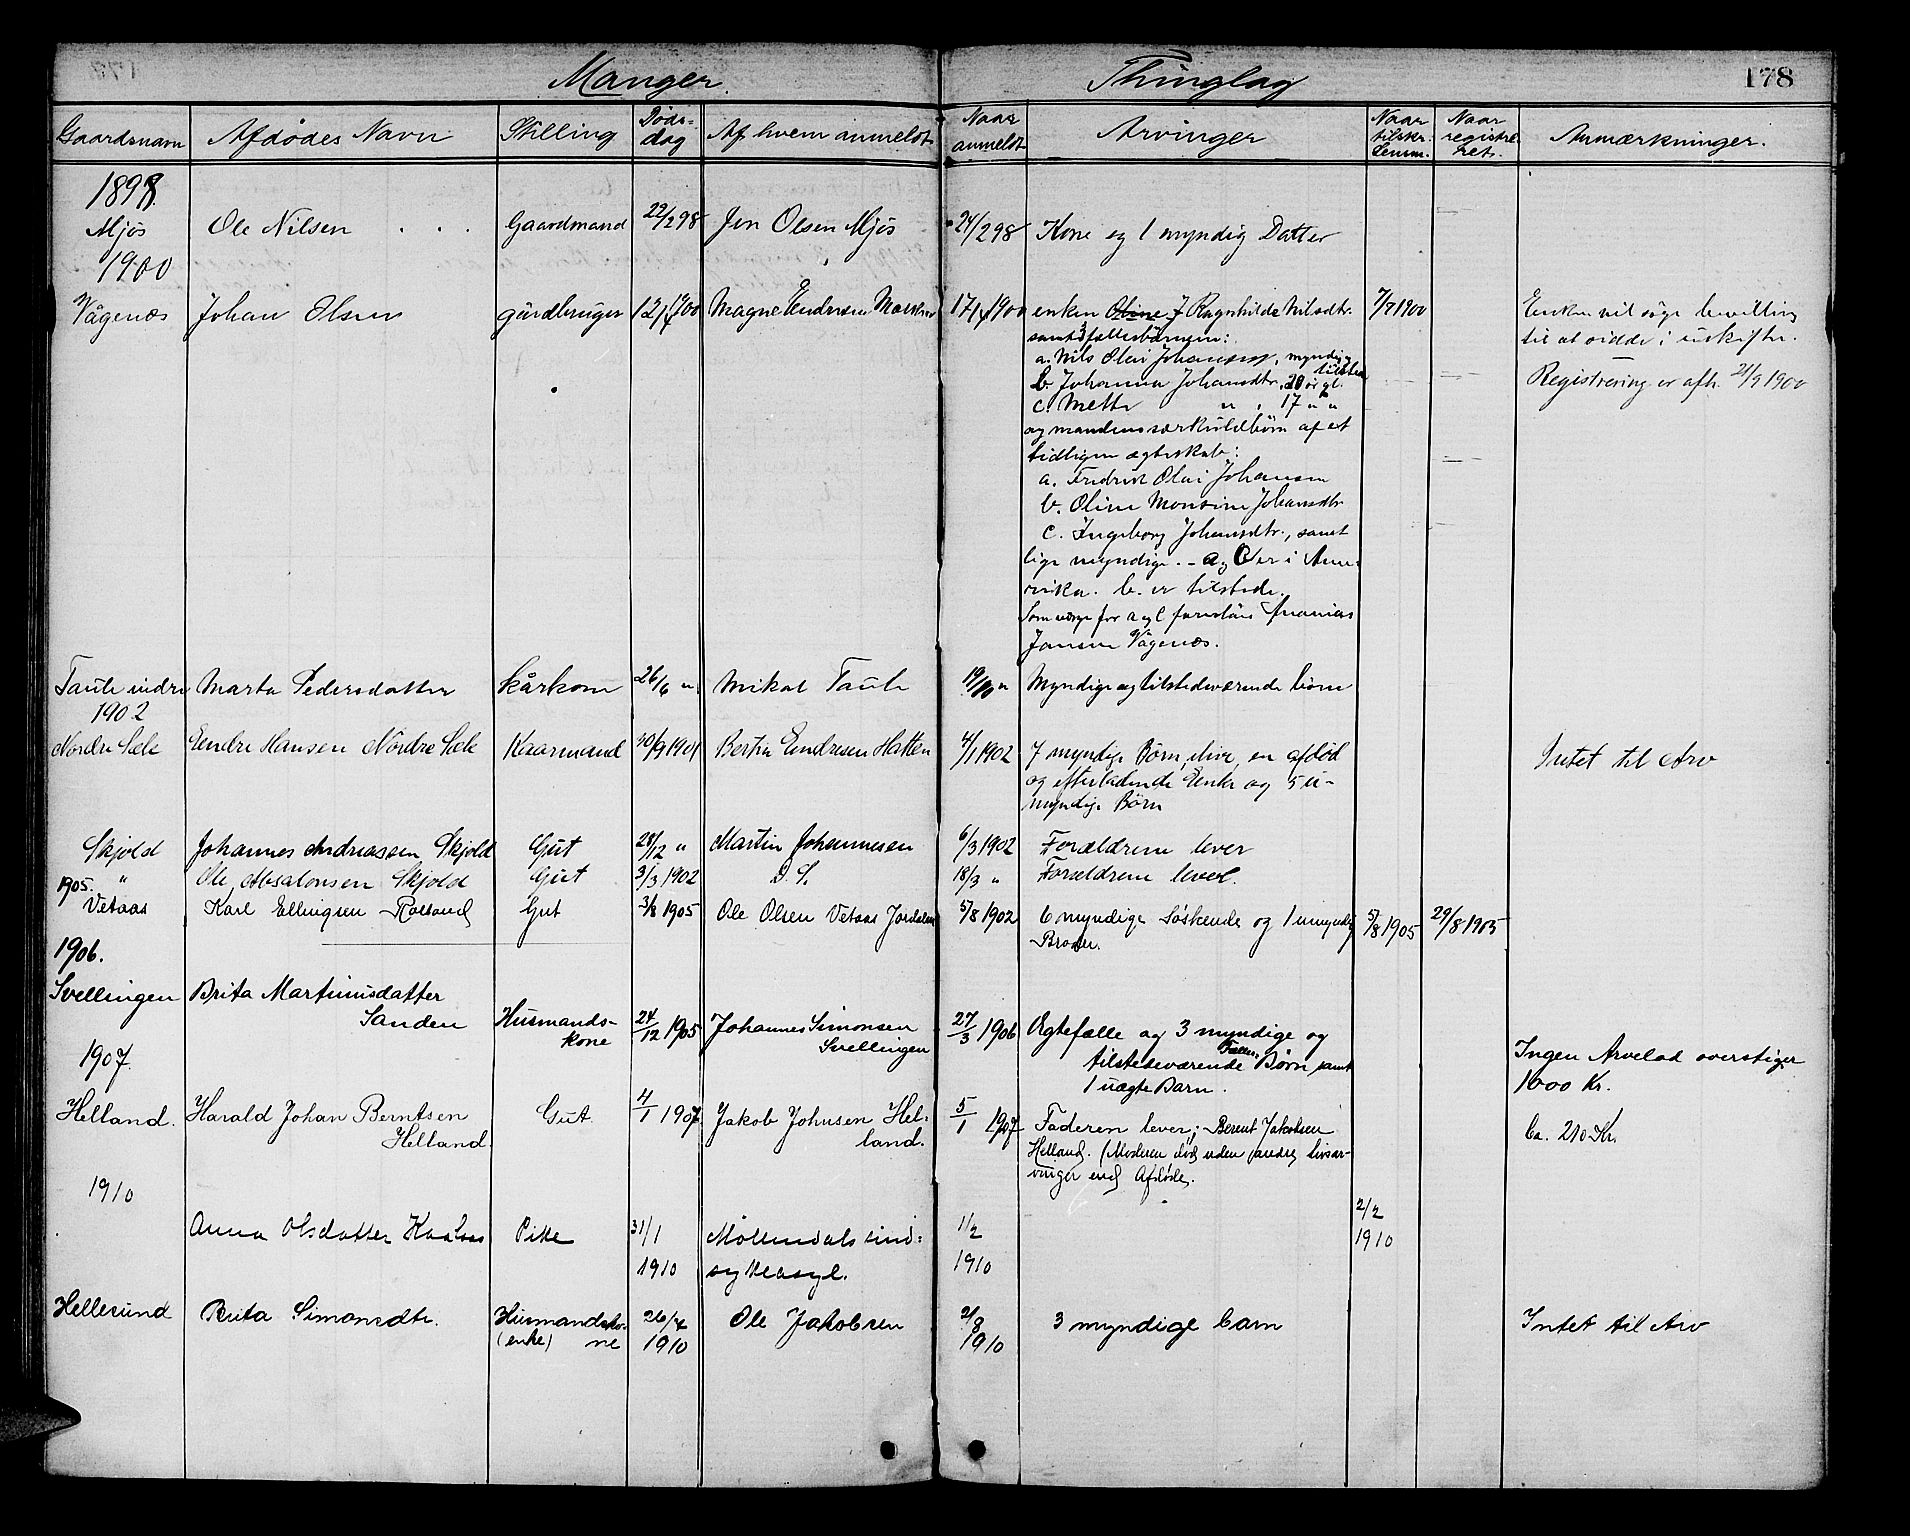 Manger Thinglag 178
Gaardsnavn Afdødes Navn Stilling Døds-dag Af hvem anmeldt Naar anmeldt Arvinger Naar tilskr. Lensm. Naar registreret. Anmærkninger.
1898.
Mjøs Ole Nilsen . . . Gaardmand 22/2 98 Jon Olsen Mjøs 24/2 98 Kone og 1 myndig Datter
1900
Vågenæs Johan Olsen gårdbruger 1900 Magne Endresen 1900 enken Oline J Ragnhilde Nilsdtr. 7/7 1900 Enken vil söge bevilling
samt 3 fællesbörnene: til at sidde i uskifte.
a. Nils Olai Johansen, myndig Registrering er afh. 21/9 1900
b. Johanna Johansdtr. 20 år gl.
c. Mette " , 17 " "
og mandens særkuldbörn af et
tidligere ægteskab:
a. Fredrik Olai Johansen
b. Oline Monsine Johansdtr
c. Ingeborg Johansdtr., samt
lige myndige. - a og c er i Ame-
rika. b. er tilstede.
Som værge for a og c foreslåes Ananias
Jansen Vågenæs.
Taule indre Marta Pedersdatter kårkone 26/6 " Mikal Taule 19/10 " Myndige og tilstedeværende börn
1902
Nordre Sæle Endre Hansen Nordre Sæle Kaarmand 30/9 1901 Bertin Endresen Hatten 4/1 1902 7 myndige Børn ilive, en afdød
og efterladende Enke og 5 u- Intet til Arv
myndige Børn
Skjold Johannes Andreassen Skjold Gut 28/12 " Martin Johannesen 6/3 1902 Forældrene lever
" Ole Absalonsen Skjold Gut 3/3 1902 D. S. 18/3 " Forældrene lever.
1905.
Vetaas Karl Ellingsen Rolland Gut 3/8 1905 Ole Olsen Vetaas Jordalen 5/8 1902 6 myndige Søskende og 1 umyndig 5/8 1905 29/8 1905
Broder.
1906.
Svellingen Brita Martinusdatter
Sanden Husmands-kone 24/12 1905 Johannes Simonsen Svellingen 27/3 1906 Ægtefælle og 3 myndige og
tilstedeværende Fælles Børn samt Ingen Arvelod overstiger
1 uægte Barn. 1600 Kr.
1907.
Helland. Harald Johan Berntsen Helland. Gut. 4/1 1907 Jakob Johnsen Hel-land. 5/1 1907 Faderen lever; Berent Jakobsen ca. 210 Kr.
Helland. (Moderen død uden andre livsar-
vinger end Afdøde.
1910
Anna Olsdatter Pike 31/1 1910 Möllendals sind-sygeasyl. 1/2 1910 2/2 1910
Hellesund Brita Simonsdtr. Husmandsko-ne (enke) 26/7 1910 Ole Jakobsen 2/8 1910 3 myndige barn Intet til Arv